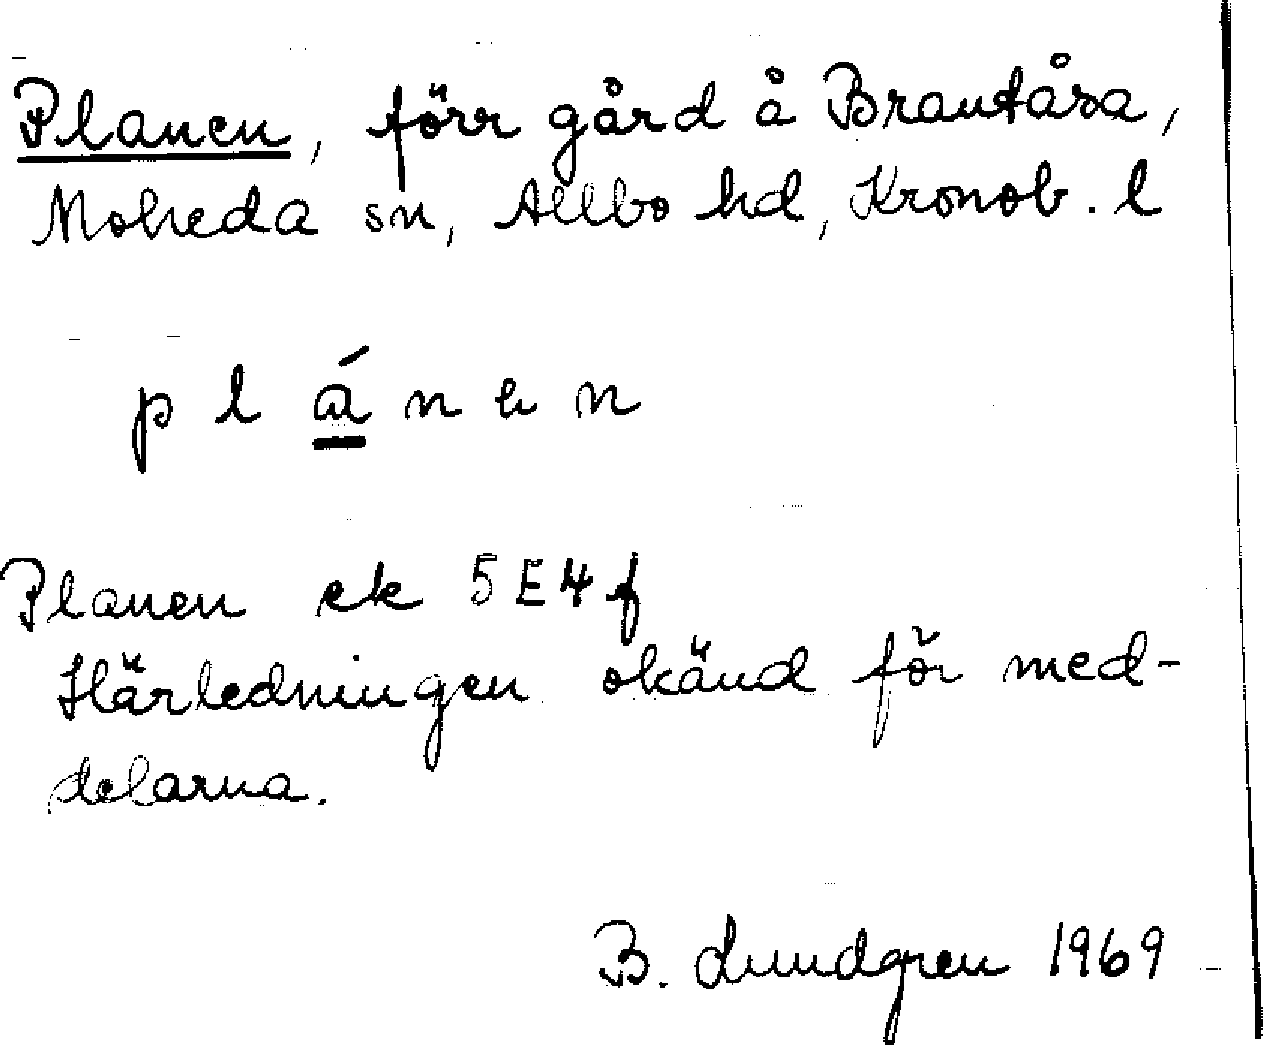 Planen, förr gård å Brantåsa,
Moheda sn, Allbo hd, Kronob. l
p l á n e n
Planen ek 5E4f
Härledningen okänd för med-
delarna.
B. Lundgren 1969